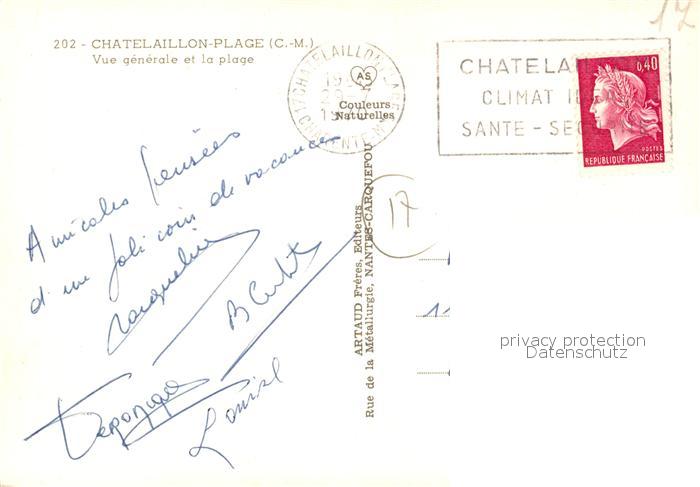 202 - CHATELAILLON-PLAGE (C.-M.)
Vue générale et la plage
17 CHATELAILLON-PLAGE
CHARENTE-Mme
AS
Couleurs
Naturelles
CHATELAI
CLIMAT
SANTE - SEC
0,40
POSTES
REPUBLIQUE FRANÇAISE
17
Amicales pensées
d'un joli coin de vacances
Jacqueline
Véronique
Louise
ARTAUD Frères, Editeurs
Rue de la Métallurgie, NANTES-CARQUEFOU
17
privacy protection
Datenschutz